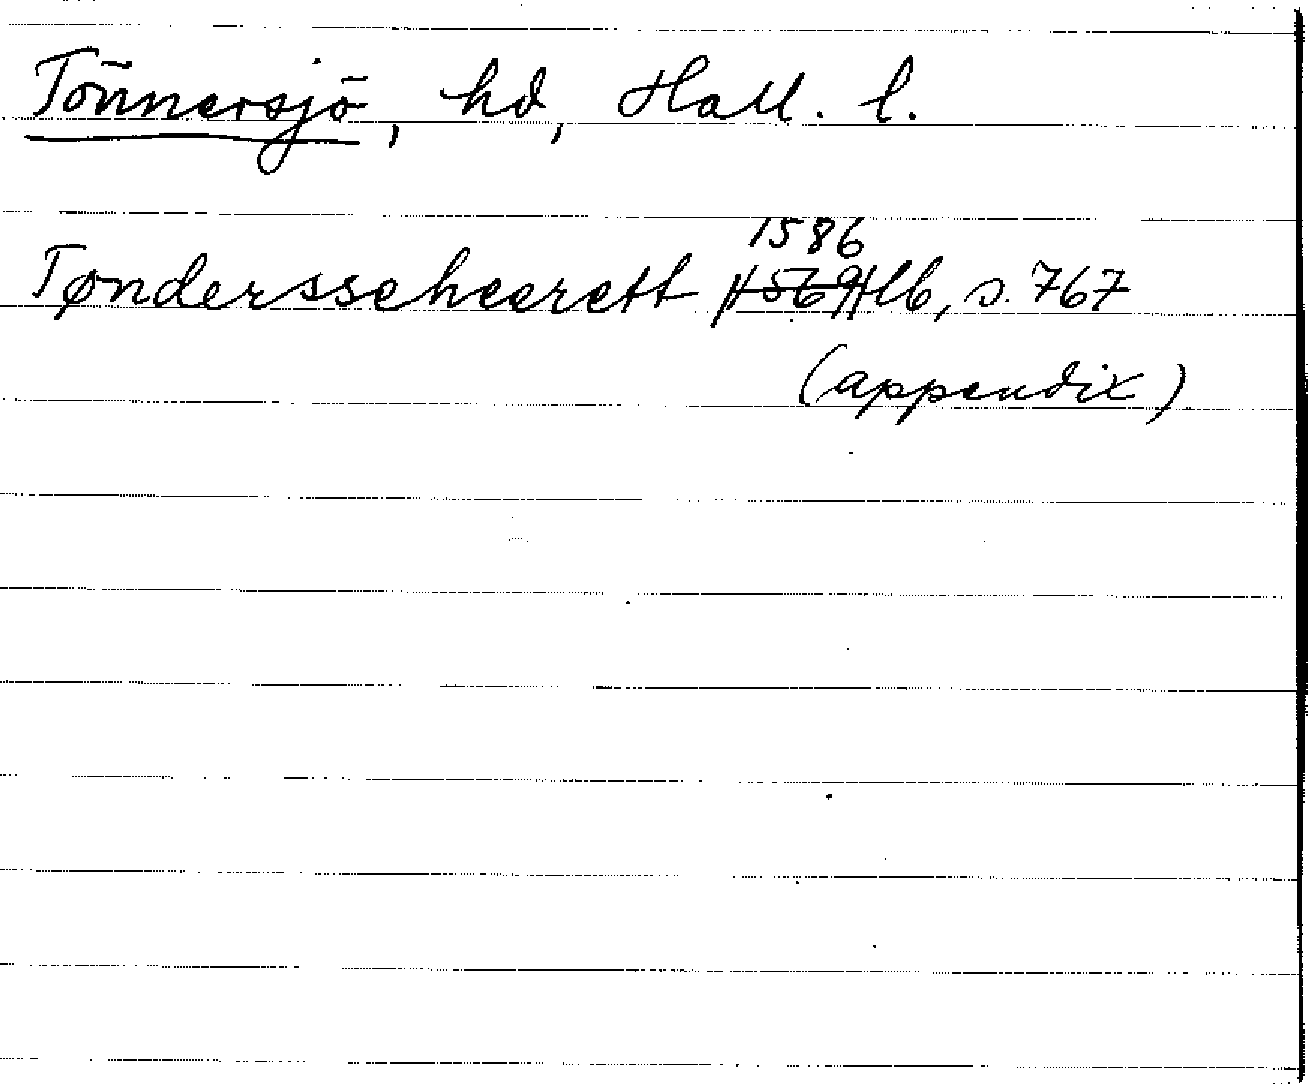 Tönnersjö, hd, Hall. l.
Tøndersseheerett 1586 lb, s. 767
(appendix)